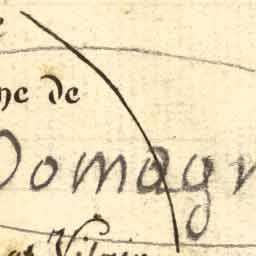 ne de
Domagn
et Vilaine